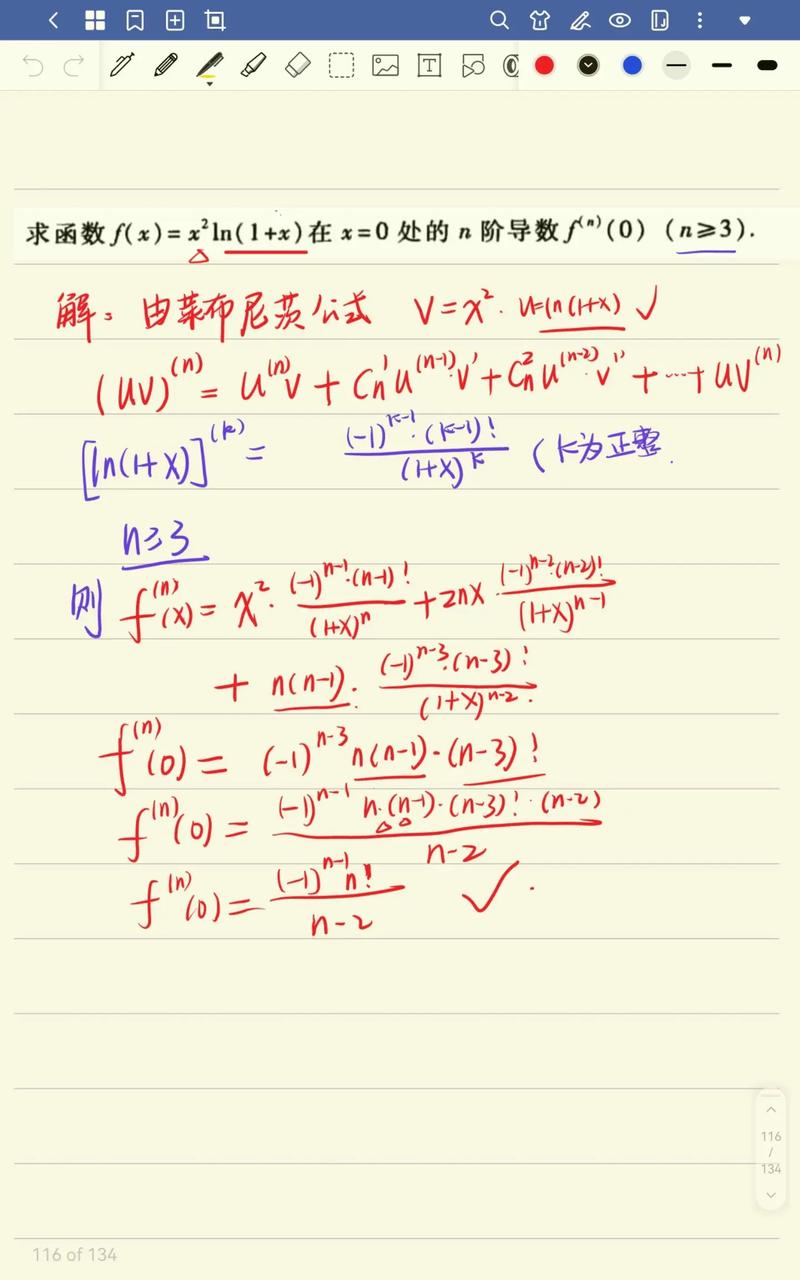 求函数 f(x)=x²ln(1+x)在 x=0 处的 n 阶导数 f⁽ⁿ⁾(0) (n≥3).
解: 由莱布尼茨公式 V=x². u=ln(1+x) ✓
(UV)⁽ⁿ⁾ = U⁽ⁿ⁾V + Cn¹U⁽ⁿ⁻¹⁾·V' + Cn²U⁽ⁿ⁻²⁾·V'' + ··· + UV⁽ⁿ⁾
[ln(1+x)]⁽ᵏ⁾ = (-1)ᵏ⁻¹·(k-1)! / (1+x)ᵏ (k为正整.
n≥3
则 f⁽ⁿ⁾(x) = x²· (-1)ⁿ⁻¹·(n-1)! / (1+x)ⁿ + 2nx · (-1)ⁿ⁻²·(n-2)! / (1+x)ⁿ⁻¹
+ n(n-1)· (-1)ⁿ⁻³·(n-3)! / (1+x)ⁿ⁻².
f⁽ⁿ⁾(0) = (-1)ⁿ⁻³ n(n-1)·(n-3)!
f⁽ⁿ⁾(0) = (-1)ⁿ⁻¹ n·(n-1)·(n-3)!·(n-2) / n-2
f⁽ⁿ⁾(0) = (-1)ⁿ⁻¹ n! / n-2 ✓.
116
/
134
116 of 134